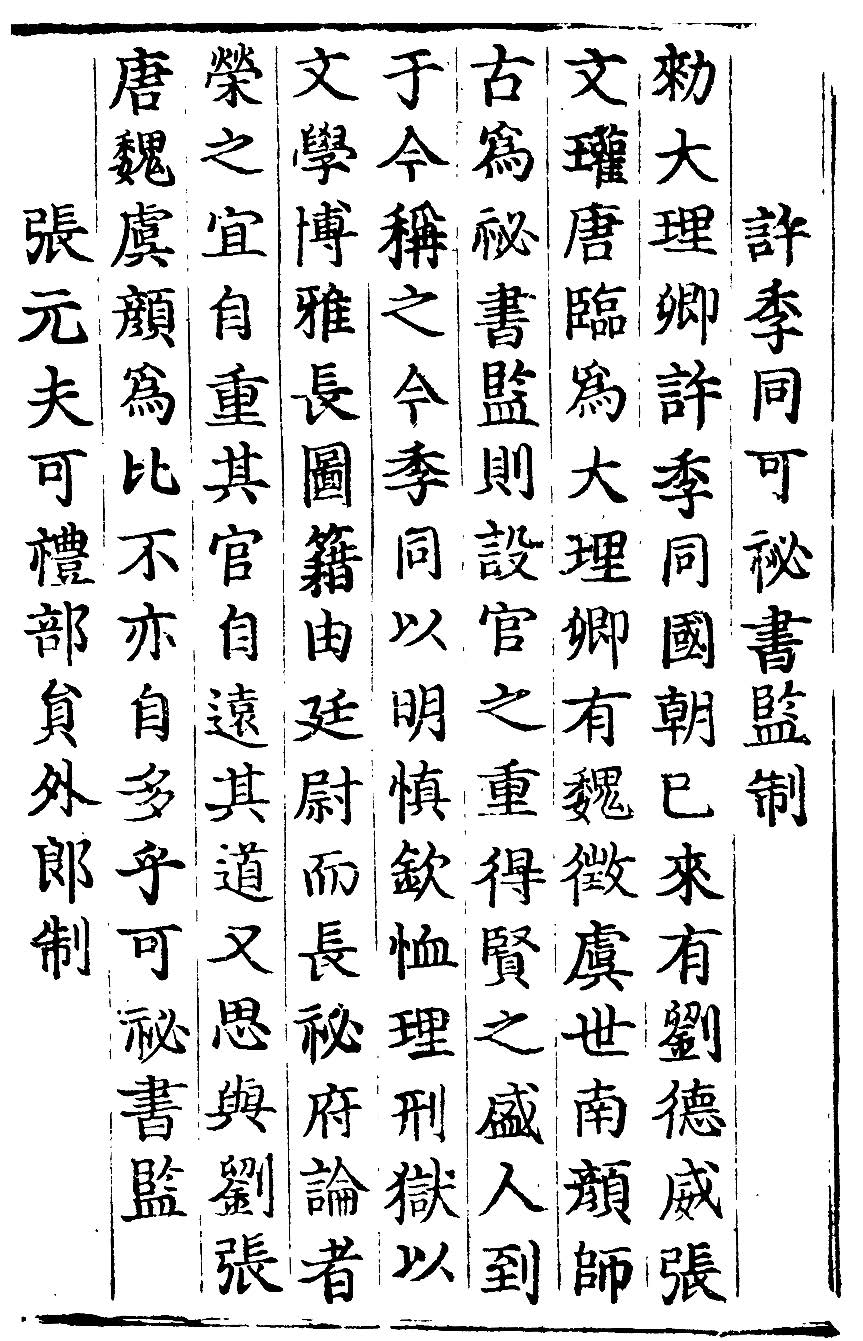 許季同可祕書監制
勑大理卿許季同國朝已來有劉德威張
文瓘唐臨爲大理卿有魏徵虞世南顔師
古爲祕書監則設官之重得賢之盛人到
于今稱之今季同以明慎欽恤理刑獄以
文學博雅長圖籍由廷尉而長祕府論者
榮之宜自重其官自遠其道又思與劉張
唐魏虞顔爲比不亦自多乎可祕書監
張元夫可禮部貟外郎制